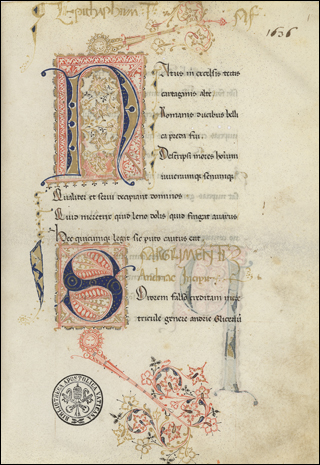 Epithaphium
1636
Natus in excelsis tectis
cartaginis alte
Romanis ducibus belli
ca preda fui
Descripsi mores hoium
iuuenumq; senumq;
Qualiter et serui decipiant dominos
Quid meretrix quid leno dolis quid fingat auarus
Hec quicumq; legit sic puto cautus erit
ARGUMENT
Andrie Incipit
Sororem falso creditam mere
tricule genere andrie Gliceriu
BIBLIOTECA APOSTOLICA VATICANA